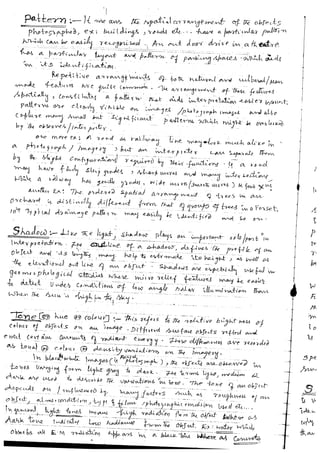 Pattern:- It means the spatial arrangement of the objects
photographed, exi buildings, roads etc... have a particular pattern
which can be easily recognised. An out door drive in a theatre
has a particular layout and pattern of parking spaces which aids
in its identification.
Repetitive arrangements of both natural and cultural/man
made features are quite common. The arrangement of these features
spatialy, constitutes a pattern that aids interpretation easier & count.
patterns are clearly visible on images / photograph images and also
capture many small but significant patterns which might be overlooked
by the observer/interpreter.
one more ex: A road or railway line may look much alike in a
photograph / Imagery, but an interpreter can separate them
by the slight configurations required by their functions. If a road
may have fairly steep grades, sharp curves and many intersections
while a railway has gentle grades, wide curves and few
another Ex: The ordered spatial arrangement of trees in an
orchard is distinctly different from that of groups of trees in a forest.
10th Typical drainage pattern may easily be identified and so on.
Shadow:- Like the light, shadow plays an important role/part in
Interpretation. The outline of a shadow, defines the profile of an
object and its length may help to estimate its height, as well as
the elevational out line of an object. Shadows are especially useful in
geomorphological studies where micro relief features may be easier
to detect under conditions of low angle solar illumination than
when the sun is high in the sky.
Tone [or hue or colour] :- this refers to the relative brightness of
colour of objects on an image. Different surface objects reflect and
emit certain amounts of radiant energy. These differences are recorded
as tonal or colour or density variations on the Imagery.
In black & white Images (or Aerial photograph), the objects are observed in
tones varying from light gray to dark. The terms light, medium &
dark are used to describe the variations in tone. The tone of an object
depends on / influenced by many factors such as roughness of an
object, climatic condition, type of film & photographic conditions used etc...
In general light tones means high radiation from the object whereas
dark tone indicates low radiance from the object. Ex: water which
absorbs all EM radiation appears in a black tone where as Concrete